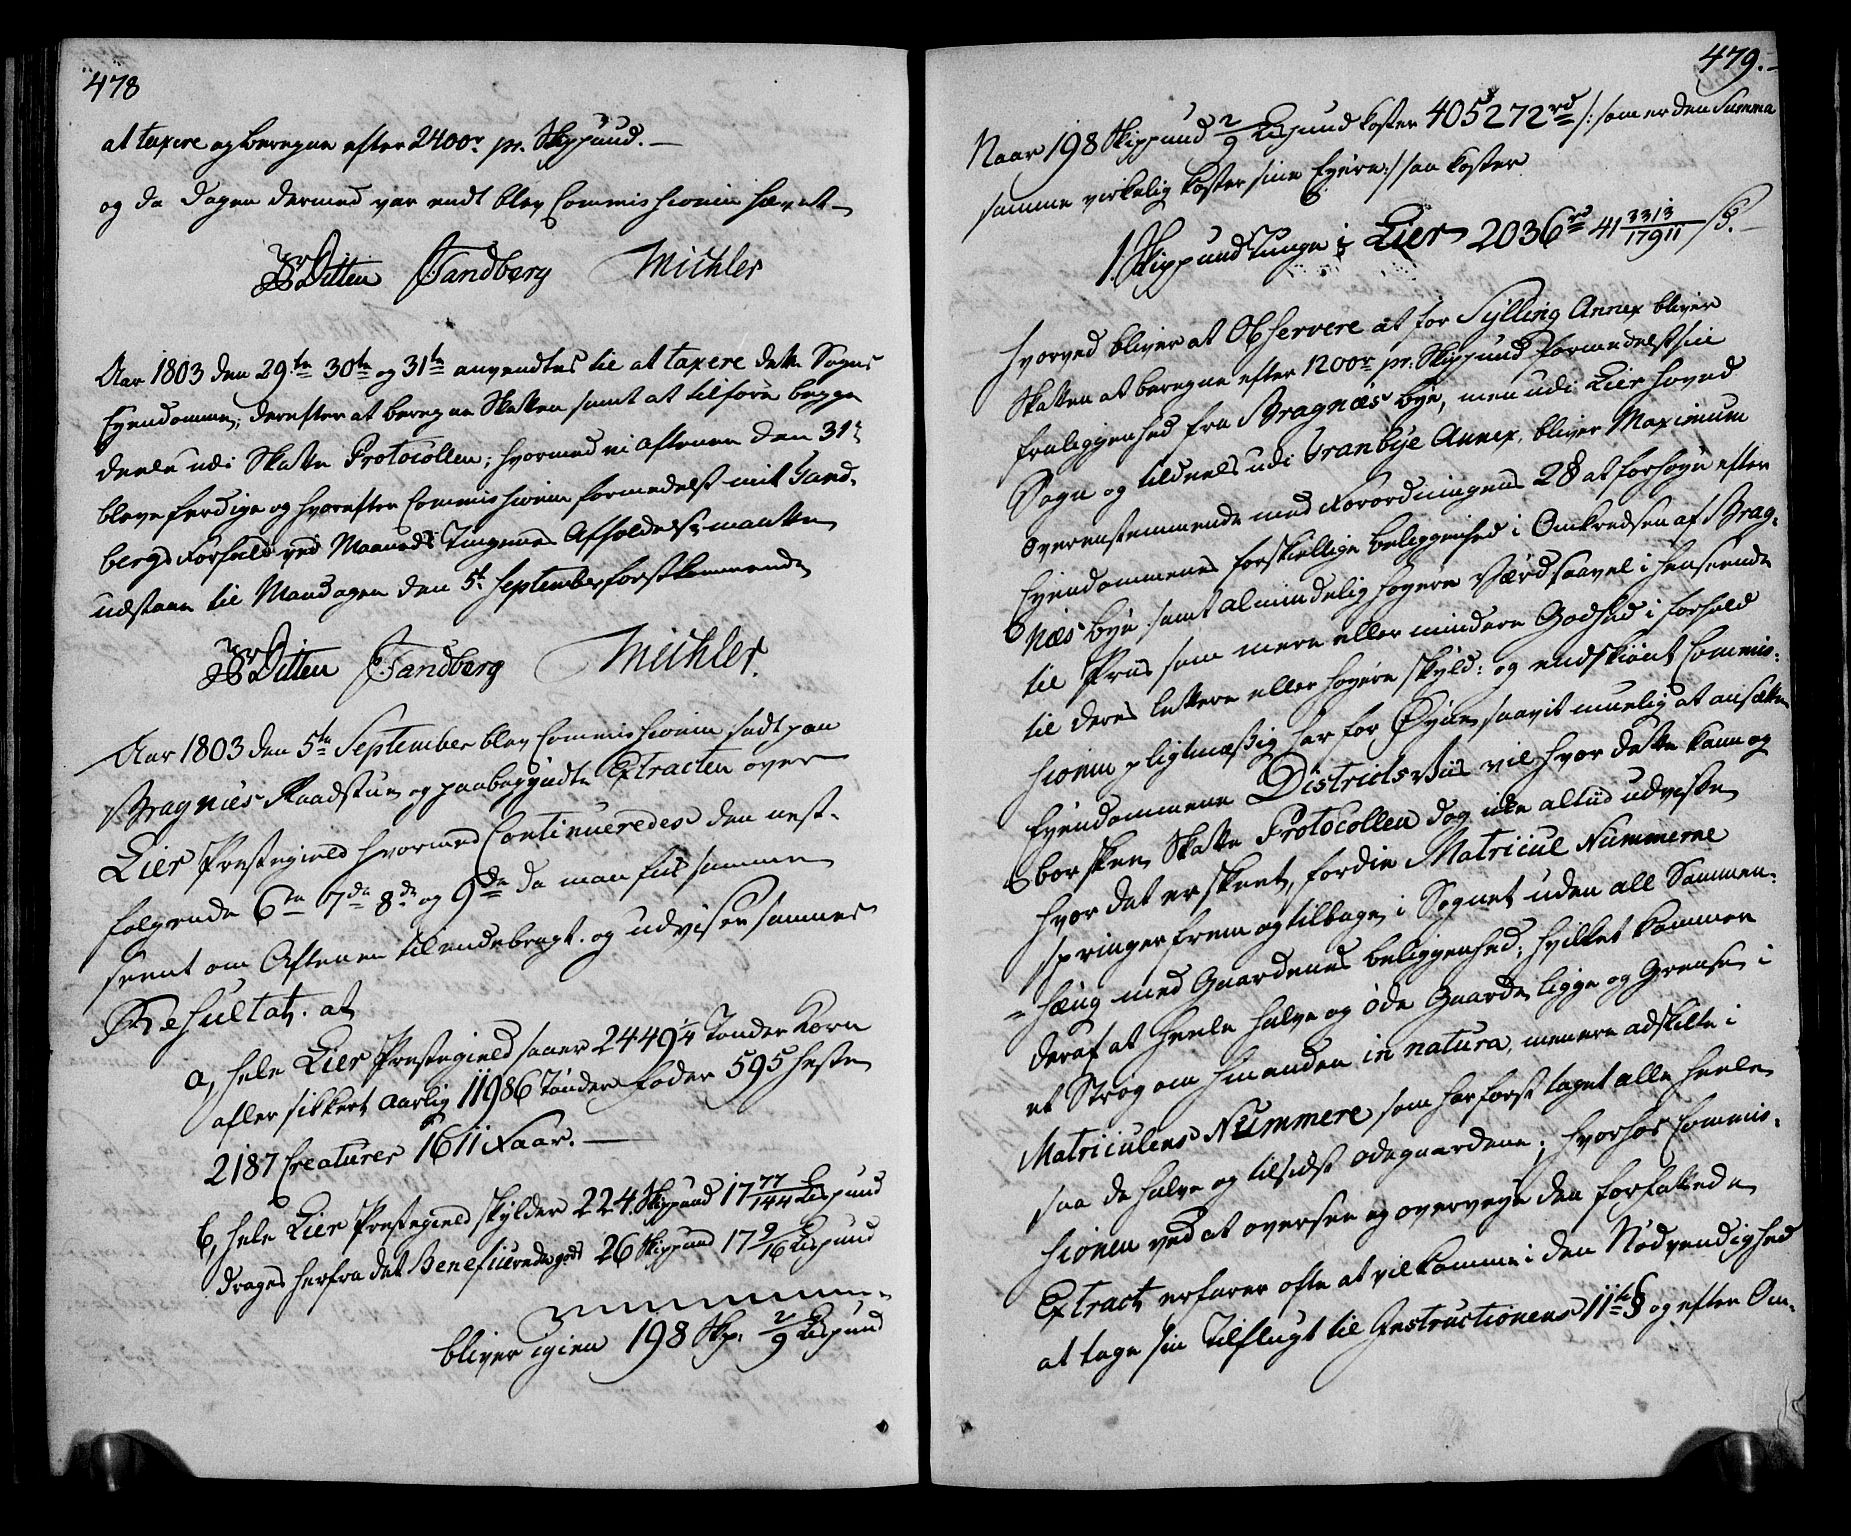 478
at taxere og beregne efter 2400r pr. Skippund. —
og da Dagen dermed var endt blev Commissionen hævet —
Ditten Sandberg Michler
Aar 1803 den 29te 30te og 31te anvendtes til at taxere dette Sogns
Eyendomme, derefter at beregne Skatten samt at tilføre begge
deele udi Skatte Protocollen; hvormed vi Aftenen den 31t
bleve færdige og hvorefter Commissionen formedelst mit Sand-
bergs Forfald ved Maaneds Tingenes Afholdelse maatte
udstaae til Mandagen den 5t September førstkommende
Ditten Sandberg Michler.
Aar 1803 den 5te September blev Commissionen sadt paa
Bragnæs Raadstue og paabegyndte Extracten over
Lier Præstegield hvormed Continueredes den næst-
følgende 6te 7de 8de og 9de da man fik samme
seent om Aftenen tilendebragt. og udviser sammes
Resultat. at
a, hele Lier Præstegield saaer 2449 1/4 Tønder Korn
afler sikkert aarlig 11986 Tønder Føder 595 Heste
2187 Creaturer 1611 Faar. —
b, hele Lier Præstegield skylder 224 Skippund 17 77/144 Lispund
drages herfra det Beneficerede gods 26 Skippund 17 9/16 Lispund
bliver igien 198 Skp. 2/9 Lispund
479. —
Naar 198 Skippund 2/9 Lispund koster 405272rd /: som er den Summa
samme virkelig koster sine Eyere :/ saa koster
1 Skippund Tunge i Lier 2036rd 41 3313/17911 s. —
hvorved bliver at Observere at for Sylling Annex bliver
Skatten at beregne efter 1200r pr. Skippund formedelst sin
fraliggenhed fra Bragnæs bye, men udi Lier Hoved
Sogn og tildeels udi Tranbye Annex, bliver Maximum
overensstemmende med Forordningens 28 at forhøye efter
Eyendommenes forskiellige beliggenhed i Omkredsen af Brag-
næs bye samt almindelig høyere Værd saavel i henseende
til Priis som mere eller mindre Godhed i forhold
til deres lættere eller høyere skyld: og endskiønt Commis-
sionen pligtmæssig har for Øyne saavit muelig at ansætte
Eyendommene Districtsviis vil hvor dette kann og
bør skee, Skatte Protocollen dog ikke altiid udviise
hvor det er skeet, fordie Matricul Nummerne
springer frem og tilbage i Sognet uden all Sammen-
hæng med Gaardenes beliggenhed; hvilket kommer
deraf at heele halve og øde Gaarde ligge og Grendse i
et Strøg om hinanden in natura, men ere adskilte i
Matriculens Nummere som har først taget alle heele
saa de halve og tilsidst ødegaardene; hvorfor Commis-
sionen ved at oversee og overveye den forfattede
Extract erfarer ofte at vil komme i den Nødvendighed
at tage sin Tilflugt til Instructionens 11te § og efter Om-